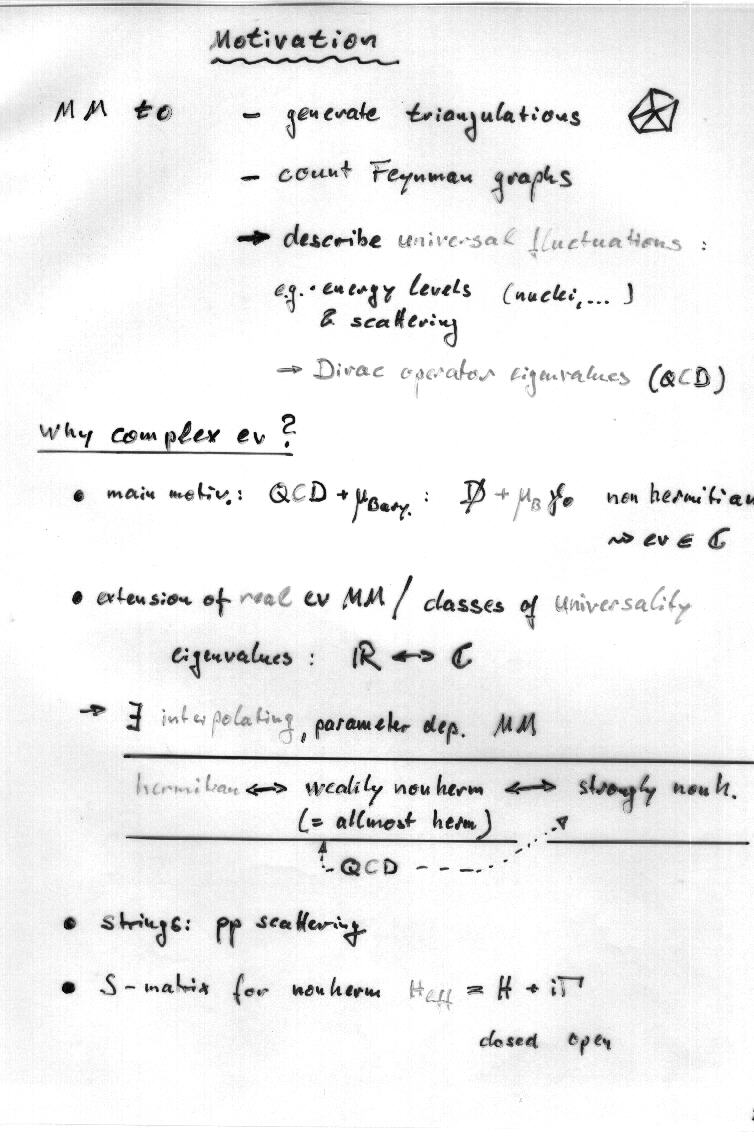 Motivation
MM to - generate triangulations
- count Feynman graphs
→ describe universal fluctuations :
e.g. • energy levels (nuclei,...)
& scattering
→ Dirac operator eigenvalues (QCD)
Why complex ev?
• main motiv.: QCD + μ_Bary. : D̸ + μ_B γ₀ non hermitian
⇝ ev ∈ ℂ
• extension of real ev MM / classes of universality
eigenvalues : ℝ ↔ ℂ
→ ∃ interpolating, parameter dep. MM
hermitean ↔ weakly nonherm ↔ strongly nonh.
(= allmost herm)
QCD
• strings: pp scattering
• S-matrix for nonherm H_eff = H + iΓ
closed open